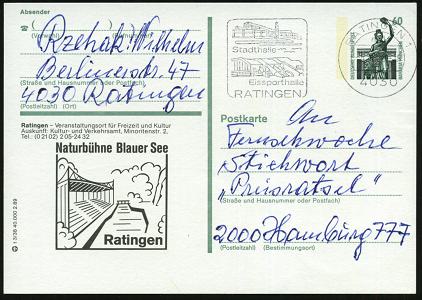 Absender
Rzehak, Wilhelm
(Vorwahl)
Berlinerstr. 47
(Straße und Hausnummer oder Postfach)
4030 Ratingen
(Postleitzahl) (Ort)
Ratingen – Veranstaltungsort für Freizeit und Kultur
Auskunft: Kultur- und Verkehrsamt, Minoritenstr. 2,
Tel.: (0 21 02) 2 05-24 32
Naturbühne Blauer See
Ratingen
Stadthalle
Eissporthalle
RATINGEN
RATINGEN 1
4030
60
Postkarte
An
Fernsehwoche
Stichwort
"Preisrätsel"
(Straße und Hausnummer oder Postfach)
2000 Hamburg 777
(Postleitzahl) (Bestimmungsort)